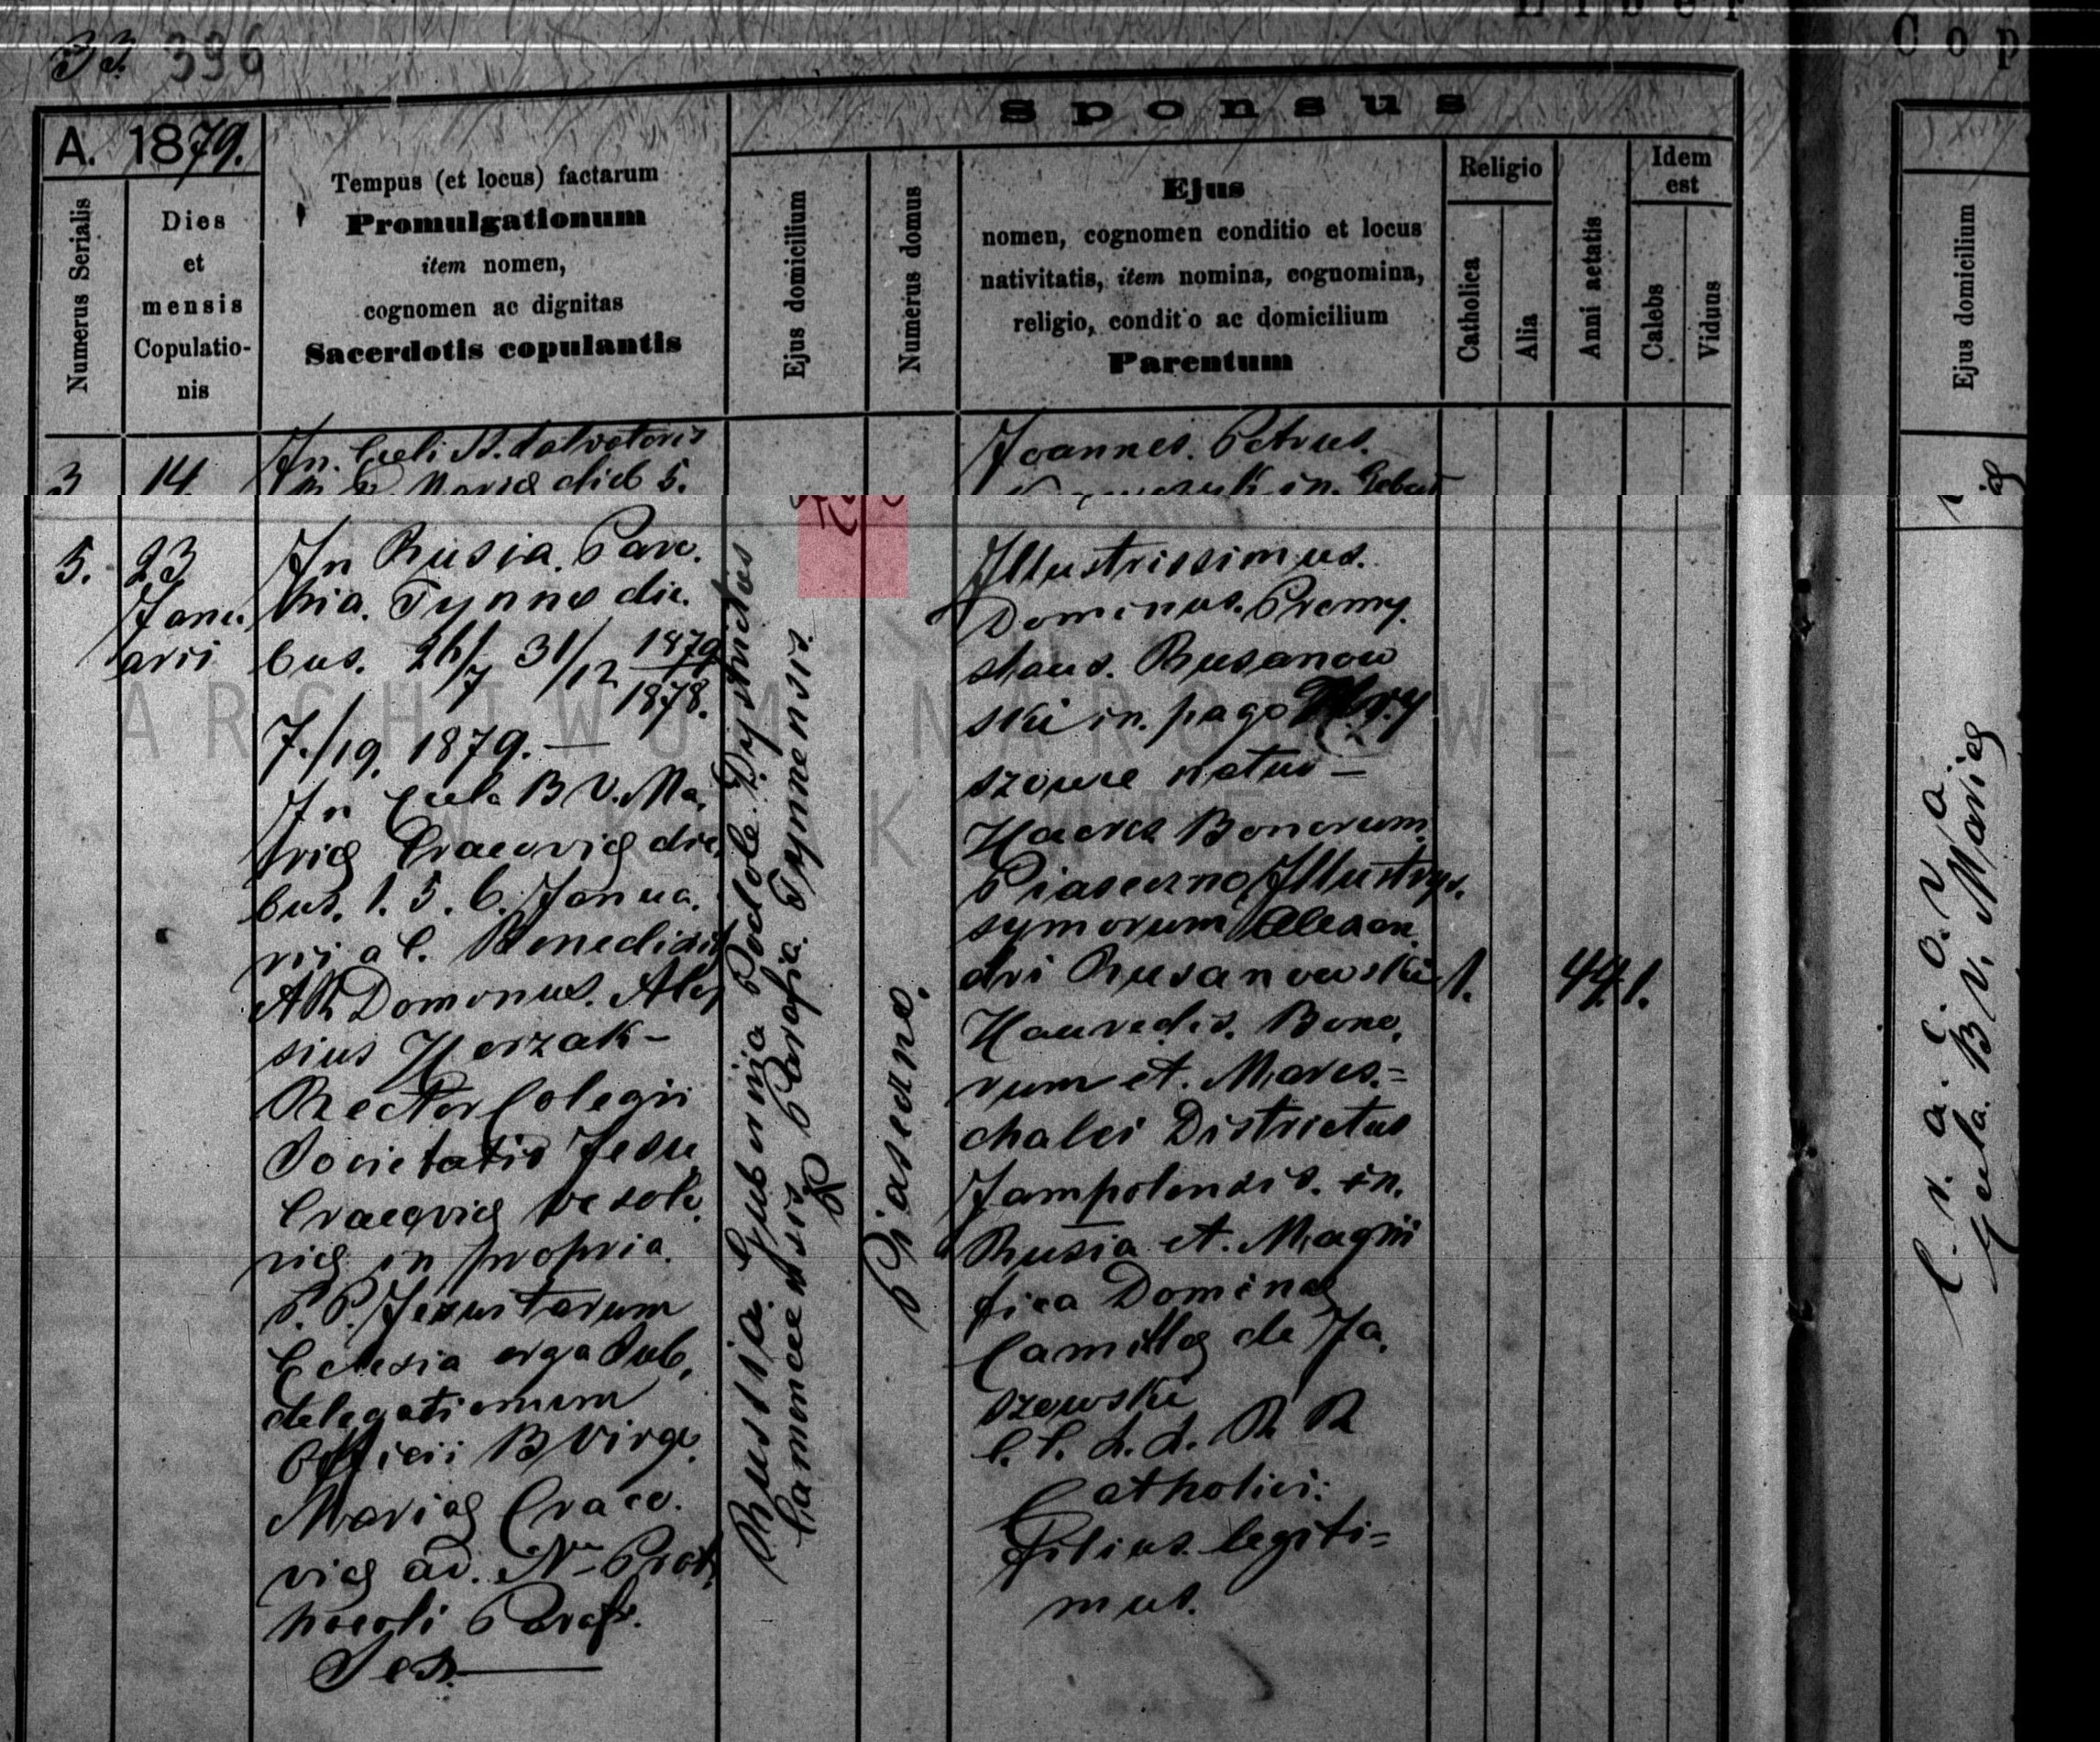 33. 396
Liber
Cop
Sponsus
A. 1879.
Numerus Serialis
Dies
et
mensis
Copulatio-
nis
Tempus (et locus) factarum
Promulgationum
item nomen,
cognomen ac dignitas
Sacerdotis copulantis
Ejus domicilium
Numerus domus
Ejus
nomen, cognomen conditio et locus
nativitatis, item nomina, cognomina,
religio, conditio ac domicilium
Parentum
Religio
Catholica
Alia
Anni aetatis
Idem
est
Calebs
Viduus
Ejus domicilium
3 14
In Eccli St. Salvatoris
dieb 5.
Joannes. Petrus.
5. 23
Janu
arii
In Rusia. Paro.
hia. Tynno die.
bus. 26/7 31/12 1879
1878.
7./19. 1879. —
In Eccla B V. Ma.
riae Cracoviae die,
bus. 1. 5. 6. Janua.
rii a C. Benedixit
AR Dominus. Aloj
sius
Rector Colegii
Societatis Jesu
Cracoviae
in propria.
P. P. Jezuitarum
Eclesia erga Sub,
delegationem
Officii B Virg.
Mariae Craco.
viae ad. Nm Prot,
hocoli Parafi.
Russia. Gubernija Podole. Dystrictus
Camenecensis Parafia. Tynnensis.
Piaseczno.
Illustrissimus.
Dominus. Premy.
slaus. Rusanow
ski in. pago
szowce natus —
Haeres Bonorum.
Piaseczno, Illustrys.
symorum Alexan
dri Rusanowski
Haeredis. Bono,
rum et. Mares.=
chalci Districtus
Jampolensis. in.
Rusia et. Magni
fica Dominae
Camillae de Ja.
szowski
C. C. L. L. R R
Catholici:
filius. legiti=
mus.
1. 44. 1.
C. r. a. c. o. v. a
Eccla. B V. Mariae
ARCHIWUM NARODOWE
W KRAKOWIE